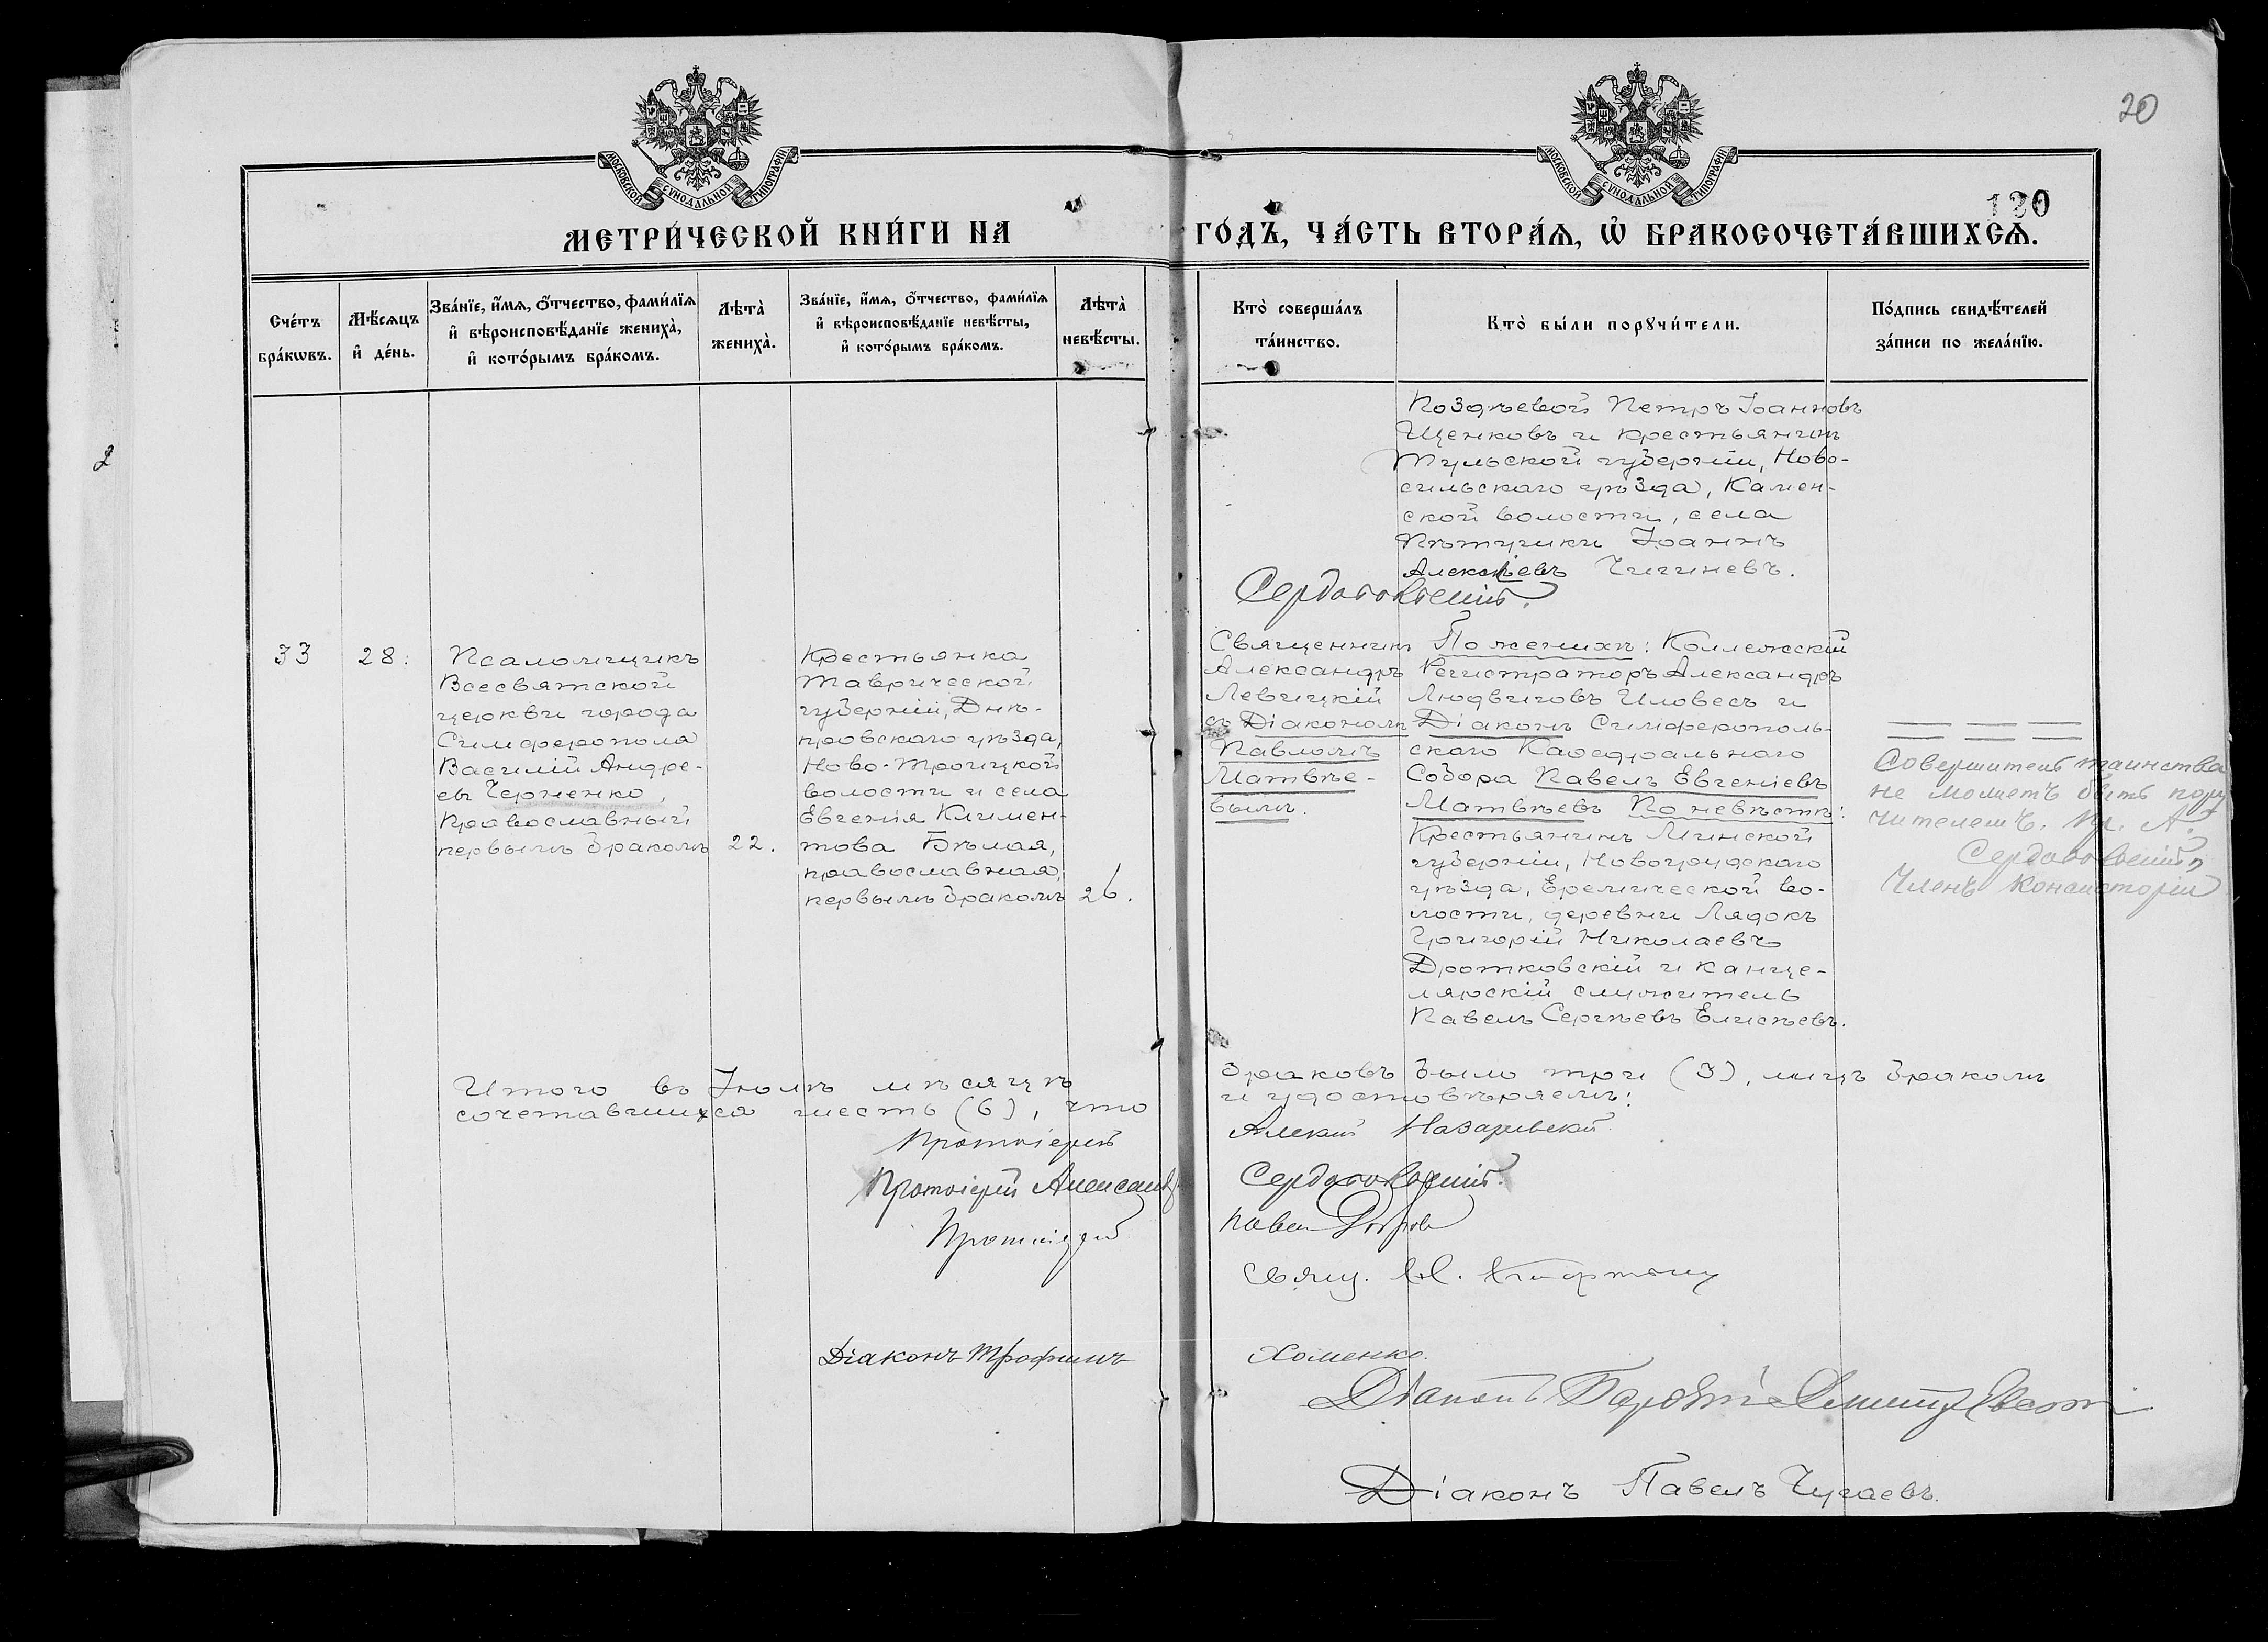 20
120
МОСКОВСКОЙ СУНОДАЛЬНОЙ ТИПОГРАФІИ
МОСКОВСКОЙ СУНОДАЛЬНОЙ ТИПОГРАФІИ
МЕТРИ́ЧЕСКОЙ КНИ́ГИ НА ГО́ДЪ, ЧА́СТЬ ВТОРА́Я, Ѡ҆ БРАКОСОЧЕТА́ВШИХСѦ.
Сче́тъ
бра́кѡвъ.
Мѣ́сяцъ
и҆ де́нь.
Зва́нїе, и҆́мѧ, ѻ҆́тчество, фами́лїѧ
и҆ вѣроисповѣ́данїе жениха̀,
и҆ кото́рымъ бра́комъ.
Лѣта̀
жениха̀.
Зва́нїе, и҆́мѧ, ѻ҆́тчество, фами́лїѧ
и҆ вѣроисповѣ́данїе невѣ́сты,
и҆ кото́рымъ бра́комъ.
Лѣта̀
невѣ́сты.
Кто̀ соверша́лъ
та́инство.
Кто̀ бы́ли порꙋчи́тели.
По́дпись свидѣ́телей
за́писи по жела́нїю.
Позднѣевой Петръ Іоанновъ
Щенковъ и крестьянинъ
Тульской губерніи, Ново-
сильскаго уѣзда, Камен-
ской волости, села
Пѣтушки Іоаннъ
Алексѣевъ Чигиневъ.
Сердобольскій.
33
28.
Псаломщикъ
Всесвятской
церкви города
Симферополя
Василій Андре-
евъ Черненко,
православный
первымъ бракомъ
22.
Крестьянка
Таврической
губерніи, Днѣ-
провскаго уѣзда,
Ново-Троицкой
волости и села
Евгенія Климен-
това Бѣлая,
православная,
первымъ бракомъ
26.
Священникъ
Александръ
Левицкій
съ Діакономъ
Павломъ
Матвѣе-
вымъ.
По женихѣ: Коллежскій
Регистраторъ Александръ
Людвиговъ Иловесъ и
Діаконъ Симферополь-
скаго Каѳедральнаго
Собора Павелъ Евгеніевъ
Матвѣевъ По невѣстѣ:
Крестьянинъ Минской
губерніи, Новогрудскаго
уѣзда, Еремической во-
лости, деревни Лядокъ
Григорій Николаевъ
Дротковскій и канце-
лярскій служитель
Павелъ Сергѣевъ Елисѣевъ.
Совершитель таинства
не можетъ быть пору
чителемъ. Пр. А.
Сердобольскій,
Членъ Консисторіи
Итого въ Іюлѣ мѣсяцѣ браковъ было три (3), лицъ бракомъ
сочетавшихся шесть (6), что и удостовѣряемъ:
Протоіерей Алексій Назаревскій.
Протоіерей Александръ Сердобольскій.
Протоіерей Павелъ
Свящ.
Діаконъ Трофимъ Хоменко.
Діаконъ
Діаконъ Павелъ Чугаевъ.